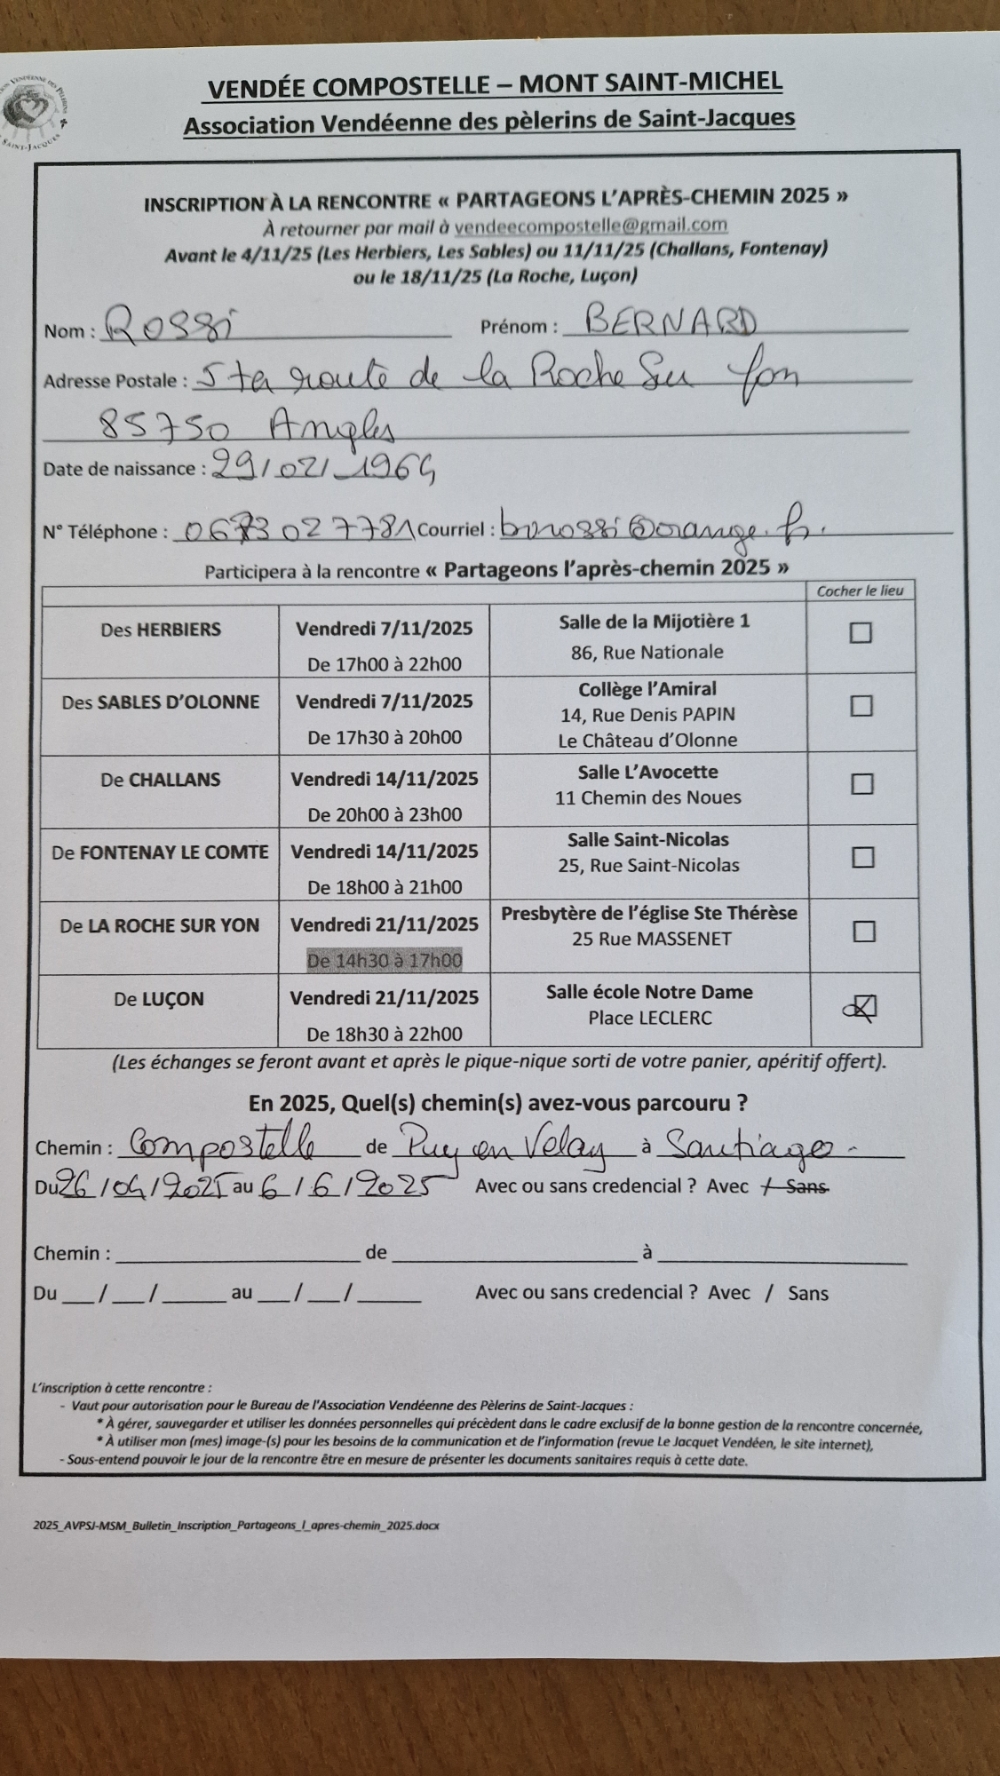 VENDÉE COMPOSTELLE – MONT SAINT-MICHEL
Association Vendéenne des pèlerins de Saint-Jacques
INSCRIPTION À LA RENCONTRE « PARTAGEONS L'APRÈS-CHEMIN 2025 »
À retourner par mail à vendeecompostelle@gmail.com
Avant le 4/11/25 (Les Herbiers, Les Sables) ou 11/11/25 (Challans, Fontenay)
ou le 18/11/25 (La Roche, Luçon)
Nom : Rossi Prénom : BERNARD
Adresse Postale : 5 ter route de la Roche Sur Yon
85750 Angles
Date de naissance : 29/02/1964
N° Téléphone : 0673027781 Courriel : bnrossi@orange.fr.
Participera à la rencontre « Partageons l'après-chemin 2025 »
Cocher le lieu
Des HERBIERS Vendredi 7/11/2025 Salle de la Mijotière 1 ☐
De 17h00 à 22h00 86, Rue Nationale
Des SABLES D'OLONNE Vendredi 7/11/2025 Collège l'Amiral ☐
14, Rue Denis PAPIN
De 17h30 à 20h00 Le Château d'Olonne
De CHALLANS Vendredi 14/11/2025 Salle L'Avocette ☐
De 20h00 à 23h00 11 Chemin des Noues
De FONTENAY LE COMTE Vendredi 14/11/2025 Salle Saint-Nicolas ☐
De 18h00 à 21h00 25, Rue Saint-Nicolas
De LA ROCHE SUR YON Vendredi 21/11/2025 Presbytère de l'église Ste Thérèse ☐
De 14h30 à 17h00 25 Rue MASSENET
De LUÇON Vendredi 21/11/2025 Salle école Notre Dame ☒
De 18h30 à 22h00 Place LECLERC
(Les échanges se feront avant et après le pique-nique sorti de votre panier, apéritif offert).
En 2025, Quel(s) chemin(s) avez-vous parcouru ?
Chemin : Compostelle de Puy en Velay à Santiago -
Du 26/04/2025 au 6/6/2025 Avec ou sans credencial ? Avec / Sans
Chemin : de à
Du __/__/____ au __/__/____ Avec ou sans credencial ? Avec / Sans
L'inscription à cette rencontre :
- Vaut pour autorisation pour le Bureau de l'Association Vendéenne des Pèlerins de Saint-Jacques :
* À gérer, sauvegarder et utiliser les données personnelles qui précèdent dans le cadre exclusif de la bonne gestion de la rencontre concernée,
* À utiliser mon (mes) image-(s) pour les besoins de la communication et de l'information (revue Le Jacquet Vendéen, le site internet),
- Sous-entend pouvoir le jour de la rencontre être en mesure de présenter les documents sanitaires requis à cette date.
2025_AVPSJ-MSM_Bulletin_Inscription_Partageons_l_apres-chemin_2025.docx